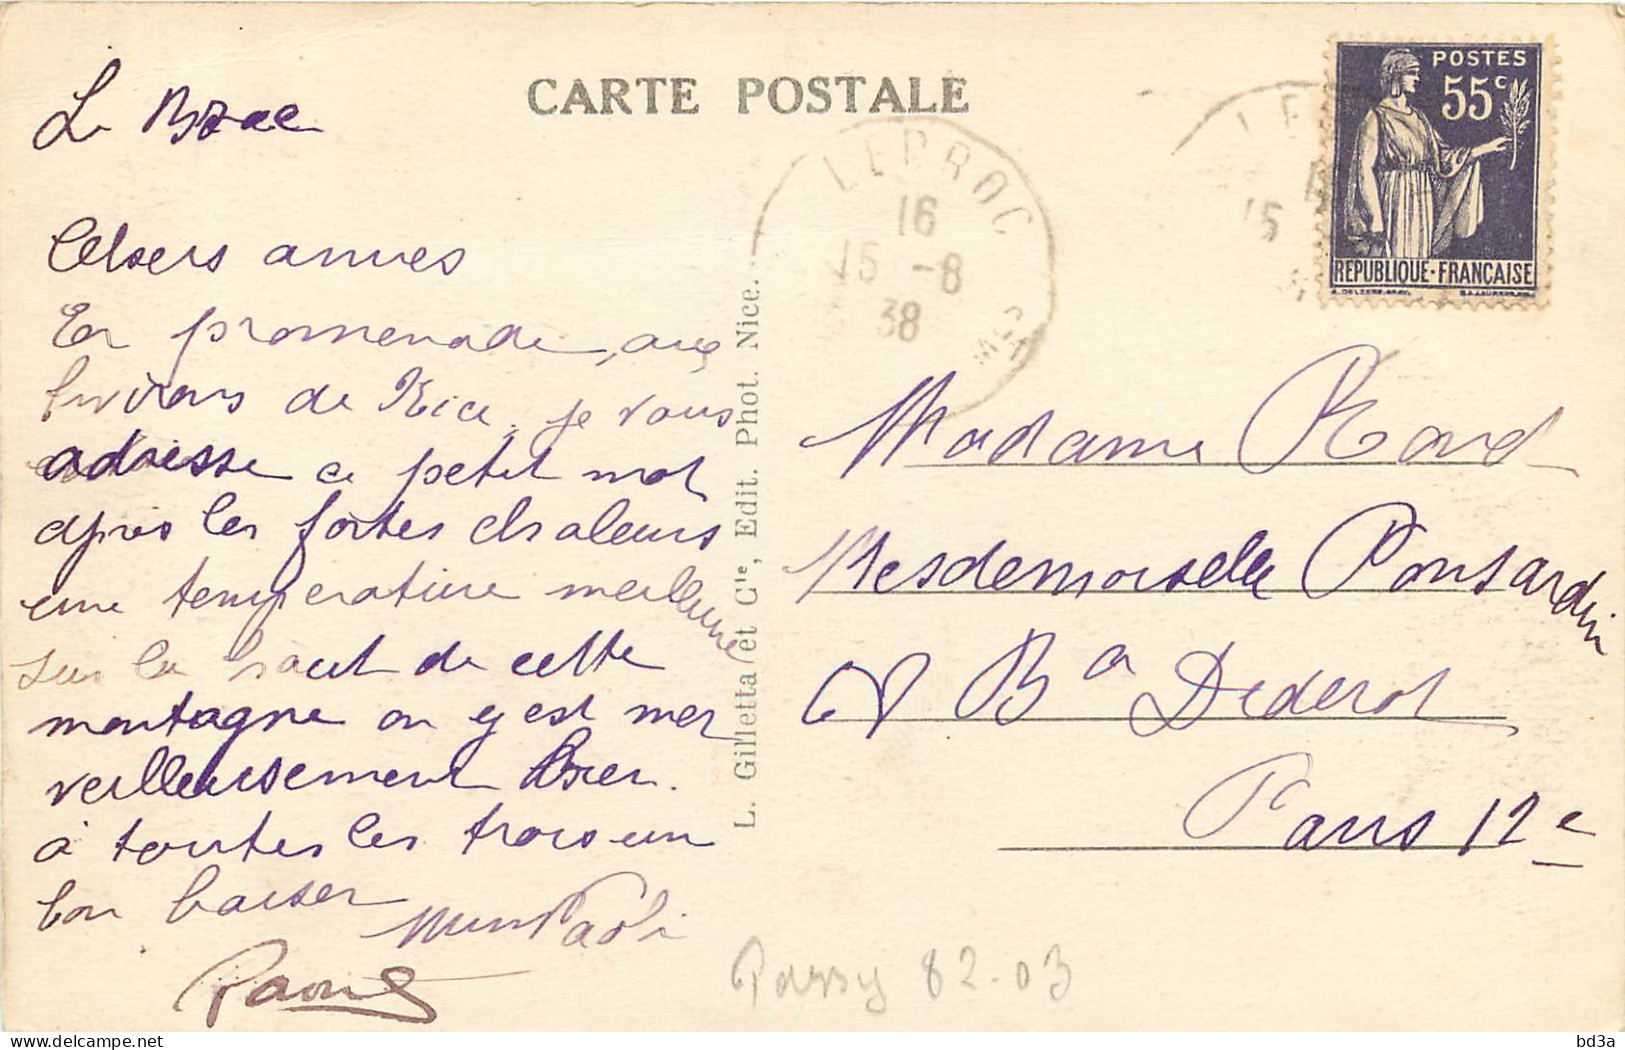 CARTE POSTALE
Le Broc
Chères amies
En promenade, aux
environs de Nice, je vous
adresse ce petit mot
après les fortes chaleurs
une temperature meilleure
sur le haut de cette
montagne on y est mer
veilleusement bien.
à toutes les trois un
bon baiser
Raoul
L. Gilletta et Cie, Edit. Phot. Nice.
LE BROC
16
15 -8
38
LE
15
POSTES
55c
REPUBLIQUE·FRANÇAISE
Madame
Mesdemoiselle Ponsardin
Bd Diderot
Paris 12e
82-03
delcampe.net
bd3a